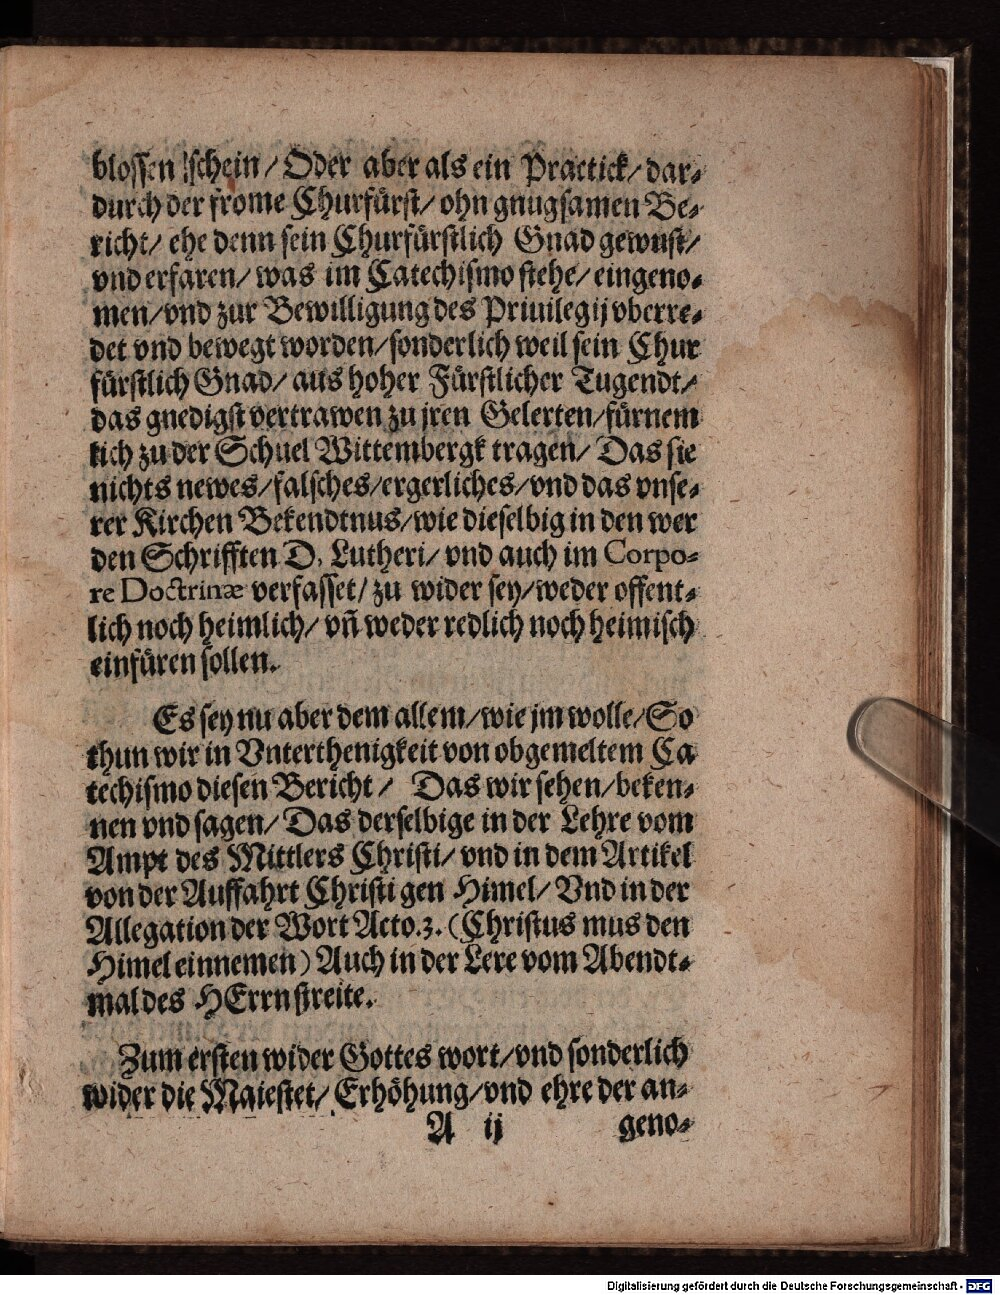 blossen schein/ Oder aber als ein Practick/ dar-
durch der frome Churfürst/ ohn gnugsamen Be-
richt/ ehe denn sein Churfürstlich Gnad gewust/
vnd erfaren/ was im Catechismo stehe/ eingeno-
men/ vnd zur Bewilligung des Priuilegij vberre-
det vnd bewegt worden/ sonderlich weil sein Chur
fürstlich Gnad/ aus hoher Fürstlicher Tugendt/
das gnedigst vertrawen zu jren Gelerten/ fürnem
lich zu der Schuel Wittembergk tragen/ Das sie
nichts newes/ falsches/ ergerliches/ vnd das vnse-
rer Kirchen Bekendtnus/ wie dieselbig in den wer
den Schrifften D. Lutheri/ vnd auch im Corpo-
re Doctrinæ verfasset/ zu wider sey/ weder offent-
lich noch heimlich/ vñ weder redlich noch heimisch
einfüren sollen.
Es sey nu aber dem allem/ wie jm wolle/ So
thun wir in Vnterthenigkeit von obgemeltem Ca
techismo diesen Bericht/ Das wir sehen/ beken-
nen vnd sagen/ Das derselbige in der Lehre vom
Ampt des Mittlers Christi/ vnd in dem Artikel
von der Auffahrt Christi gen Himel/ Vnd in der
Allegation der Wort Acto. 3. (Christus mus den
Himel einnemen) Auch in der Lere vom Abendt-
mal des HErrn streite.
Zum ersten wider Gottes wort/ vnd sonderlich
wider die Maiestet/ Erhöhung/ vnd ehre der an-
A ij geno-
Digitalisierung gefördert durch die Deutsche Forschungsgemeinschaft - DFG